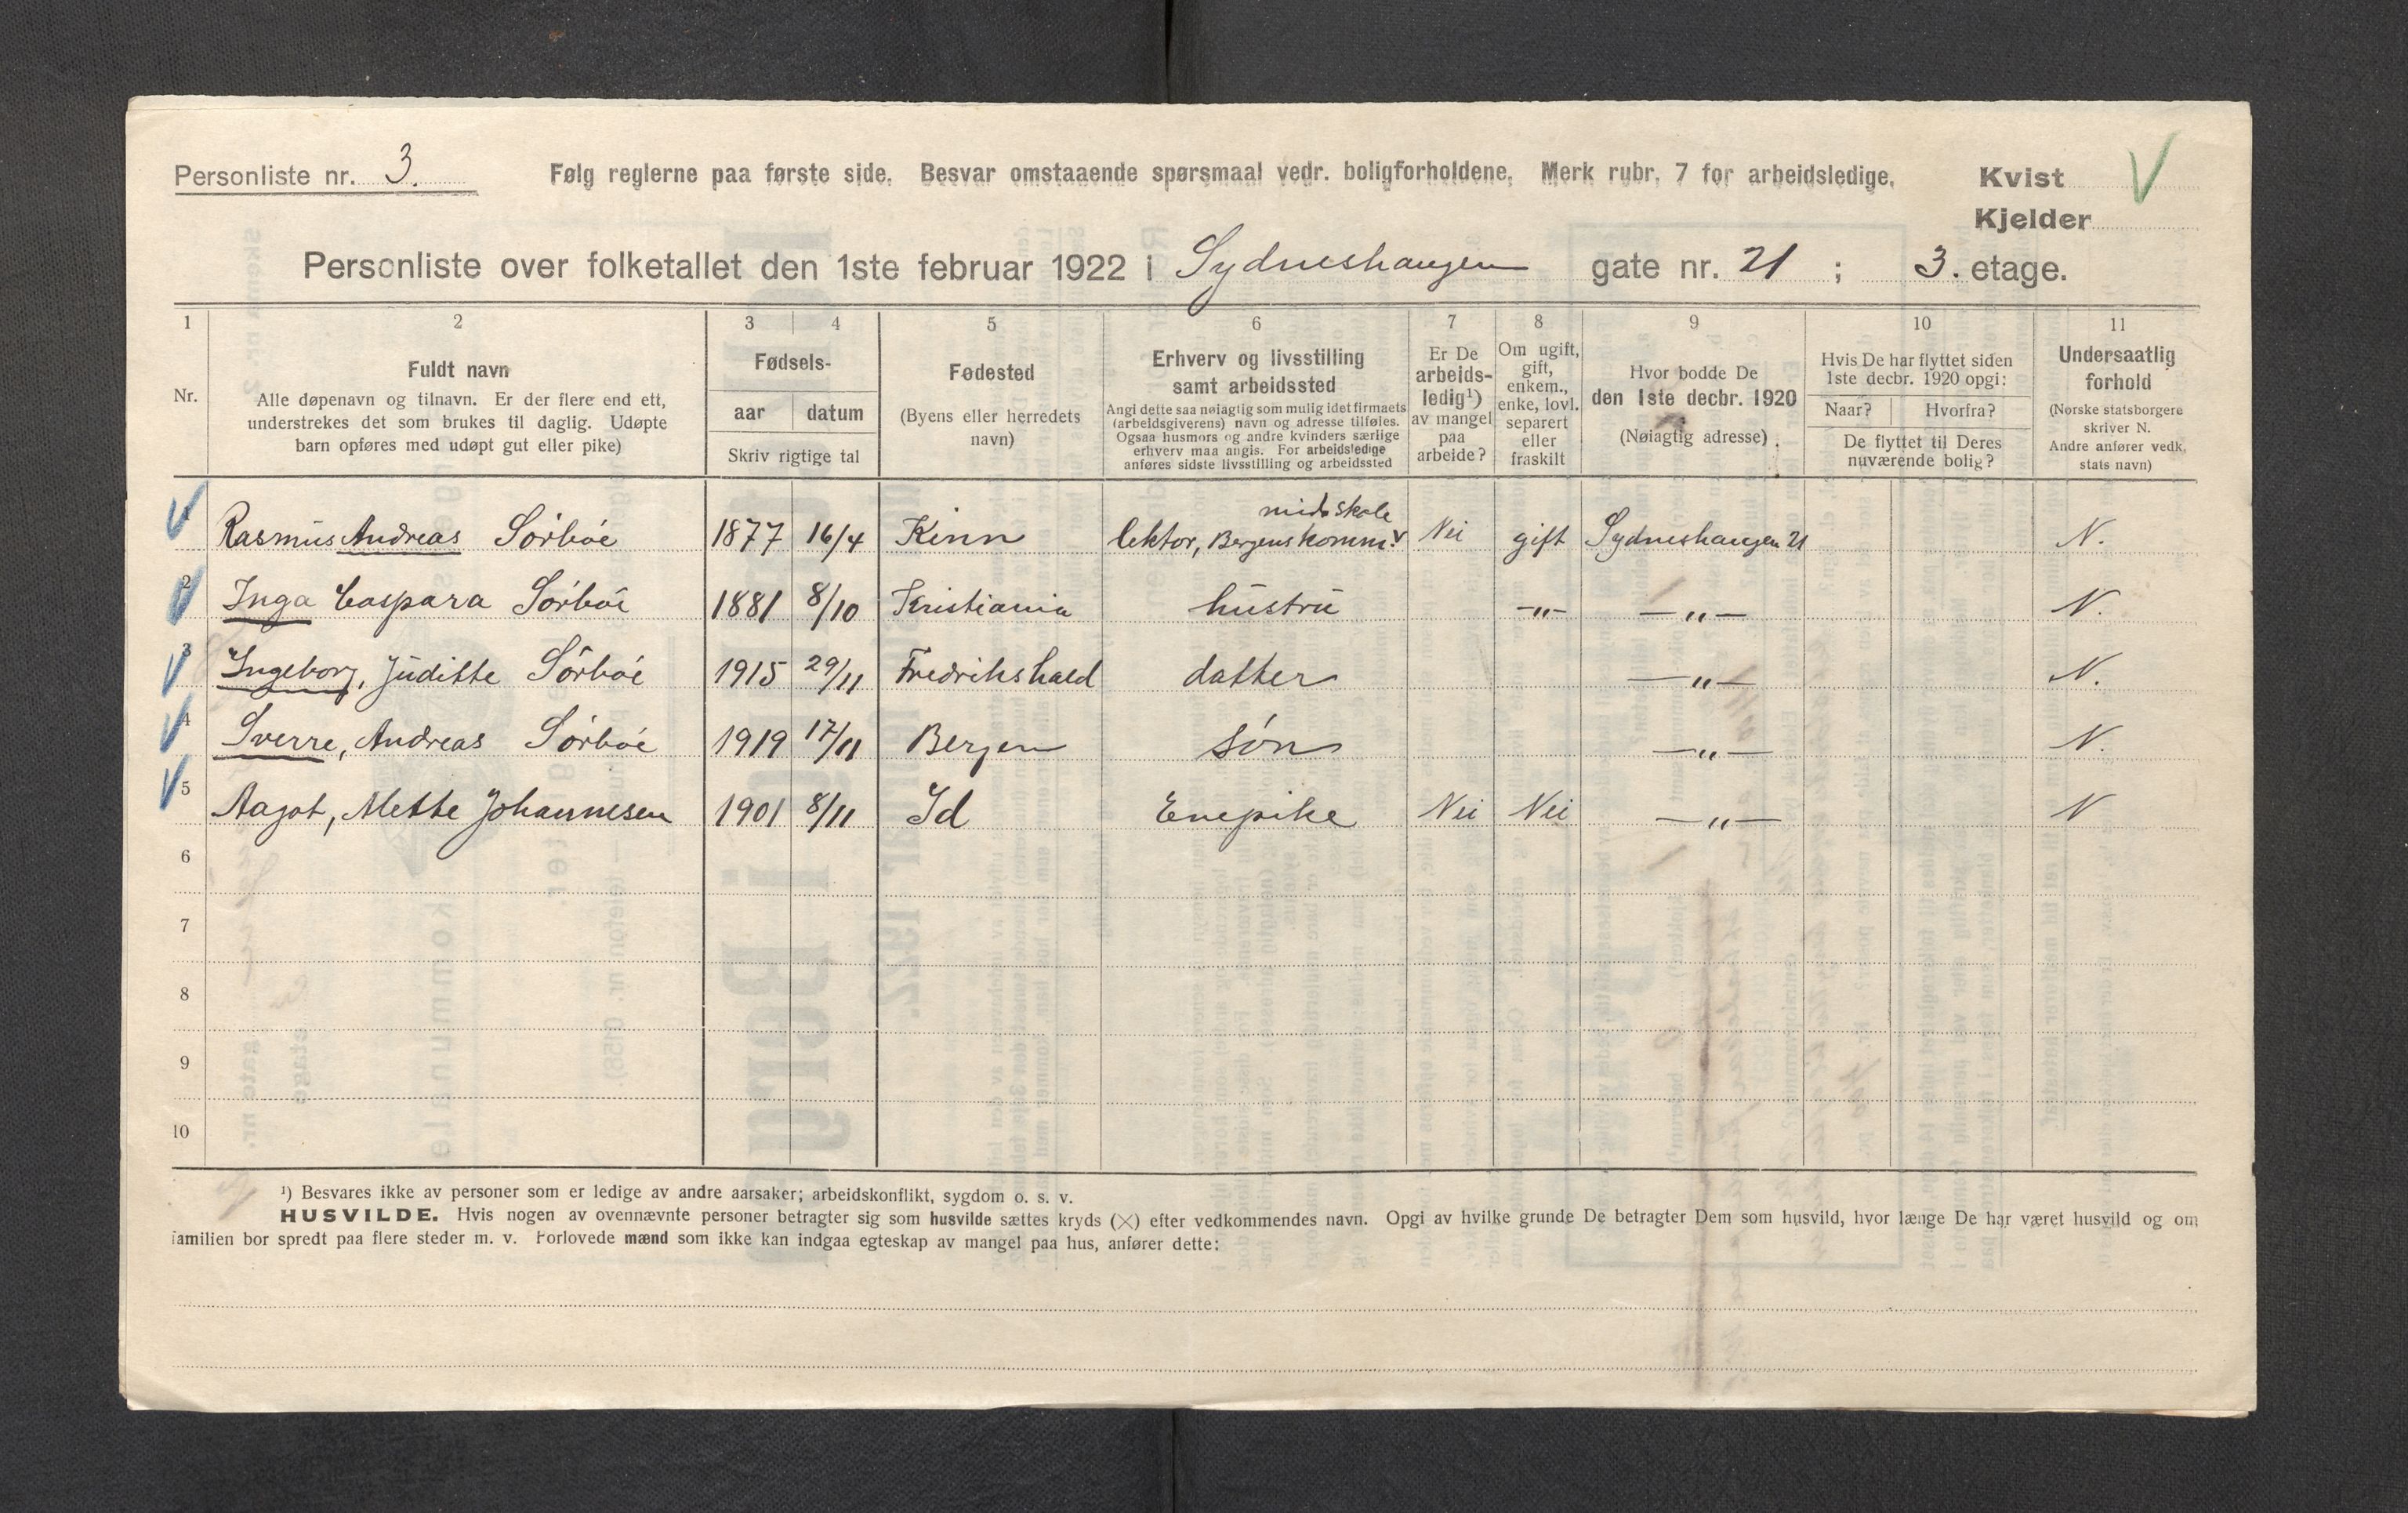 Personliste nr. 3. Følg reglerne paa første side. Besvar omstaaende spørsmaal vedr. boligforholdene. Merk rubr. 7 for arbeidsledige. Kvist
Kjelder
Personliste over folketallet den 1ste februar 1922 i Sydneshaugen gate nr. 21 ; 3. etage.
1 2 3 4 5 6 7 8 9 10 11
Nr.
Fuldt navn
Alle døpenavn og tilnavn. Er der flere end ett,
understrekes det som brukes til daglig. Udøpte
barn opføres med udøpt gut eller pike)
Fødsels-
aar datum
Skriv rigtige tal
Fødested
(Byens eller herredets
navn)
Erhverv og livsstilling
samt arbeidssted
Angi dette saa nøiagtig som mulig idet firmaets
(arbeidsgiverens) navn og adresse tilføies.
Ogsaa husmors og andre kvinders særlige
erhverv maa angis. For arbeidsledige
anføres sidste livsstilling og arbeidssted
Er De
arbeids-
ledig¹)
av mangel
paa
arbeide?
Om ugift,
gift,
enkem.,
enke, lovl.
separert
eller
fraskilt
Hvor bodde De
den 1ste decbr. 1920
(Nøiagtig adresse)
Hvis De har flyttet siden
1ste decbr. 1920 opgi:
Naar? Hvorfra?
De flyttet til Deres
nuværende bolig?
Undersaatlig
forhold
(Norske statsborgere
skriver N.
Andre anfører vedk.
stats navn)
midskole
Rasmus Andreas Sörböe 1877 16/4 Kinn lektor, Bergens komm. Nei gift Sydneshaugen 21 N.
2 Inga Caspara Sörböe 1881 8/10 Kristiania hustru —"— —"— N.
3 Ingeborg, Juditte Sörböe 1915 29/11 Fredrikshald datter —"— N.
4 Sverre, Andreas Sörböe 1919 17/11 Bergen søn —"— N.
5 Aagot, Mette Johannesen 1901 8/11 Id Enepike Nei Nei —"— N
6
7
8
9
10
¹) Besvares ikke av personer som er ledige av andre aarsaker; arbeidskonflikt, sygdom o. s. v.
HUSVILDE. Hvis nogen av ovennævnte personer betragter sig som husvilde sættes kryds (×) efter vedkommendes navn. Opgi av hvilke grunde De betragter Dem som husvild, hvor længe De har været husvild og om
familien bor spredt paa flere steder m. v. Forlovede mænd som ikke kan indgaa egteskap av mangel paa hus, anfører dette: